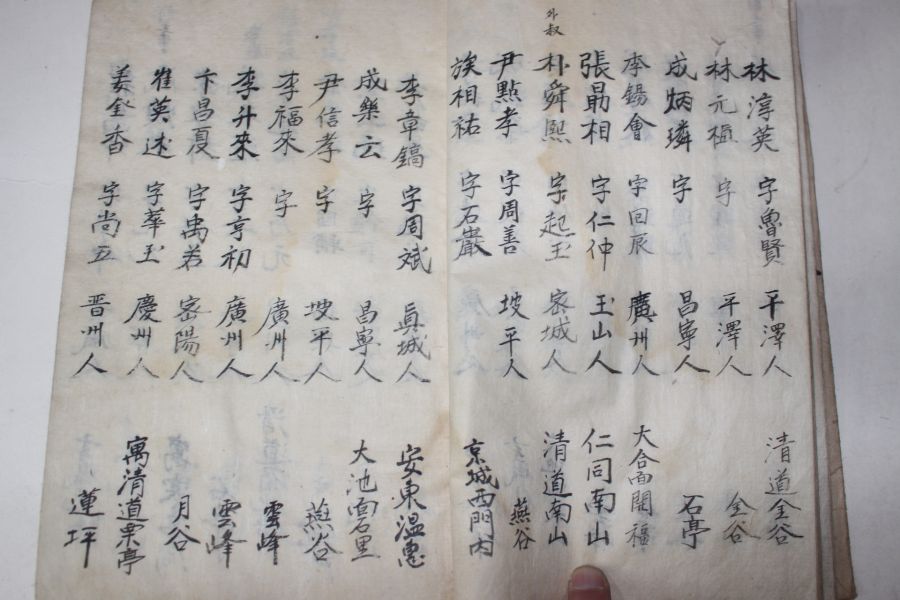 林淳英 字魯賢 平澤人 清道金谷
林元植 字 平澤人 金谷
成炳璘 字 昌寧人 石亭
李錫會 字回辰 廣州人 大合面開福
張勗相 字仁仲 玉山人 仁同南山
外叔 朴舜熙 字起玉 密城人 清道南山
尹點孝 字周善 坡平人 燕谷
族相祐 字石巖 京城西門內
李章鎬 字周斌 眞城人 安東溫惠
成樂云 字 昌寧人 大池面石里
尹信孝 字 坡平人 燕谷
李福來 字 廣州人 雲峰
李升來 字亨初 廣州人 雲峰
卞昌夏 字禹若 密陽人 月谷
崔英述 字華玉 慶州人 寓清道栗亭
姜 香 字尚五 晋州人 蓮坪